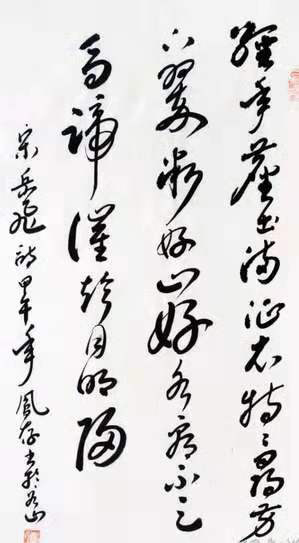 經年塵土滿征衣特特尋芳
上翠微好山好水看不足
馬蹄催趁月明歸
宋岳飛詩甲午年風存書於